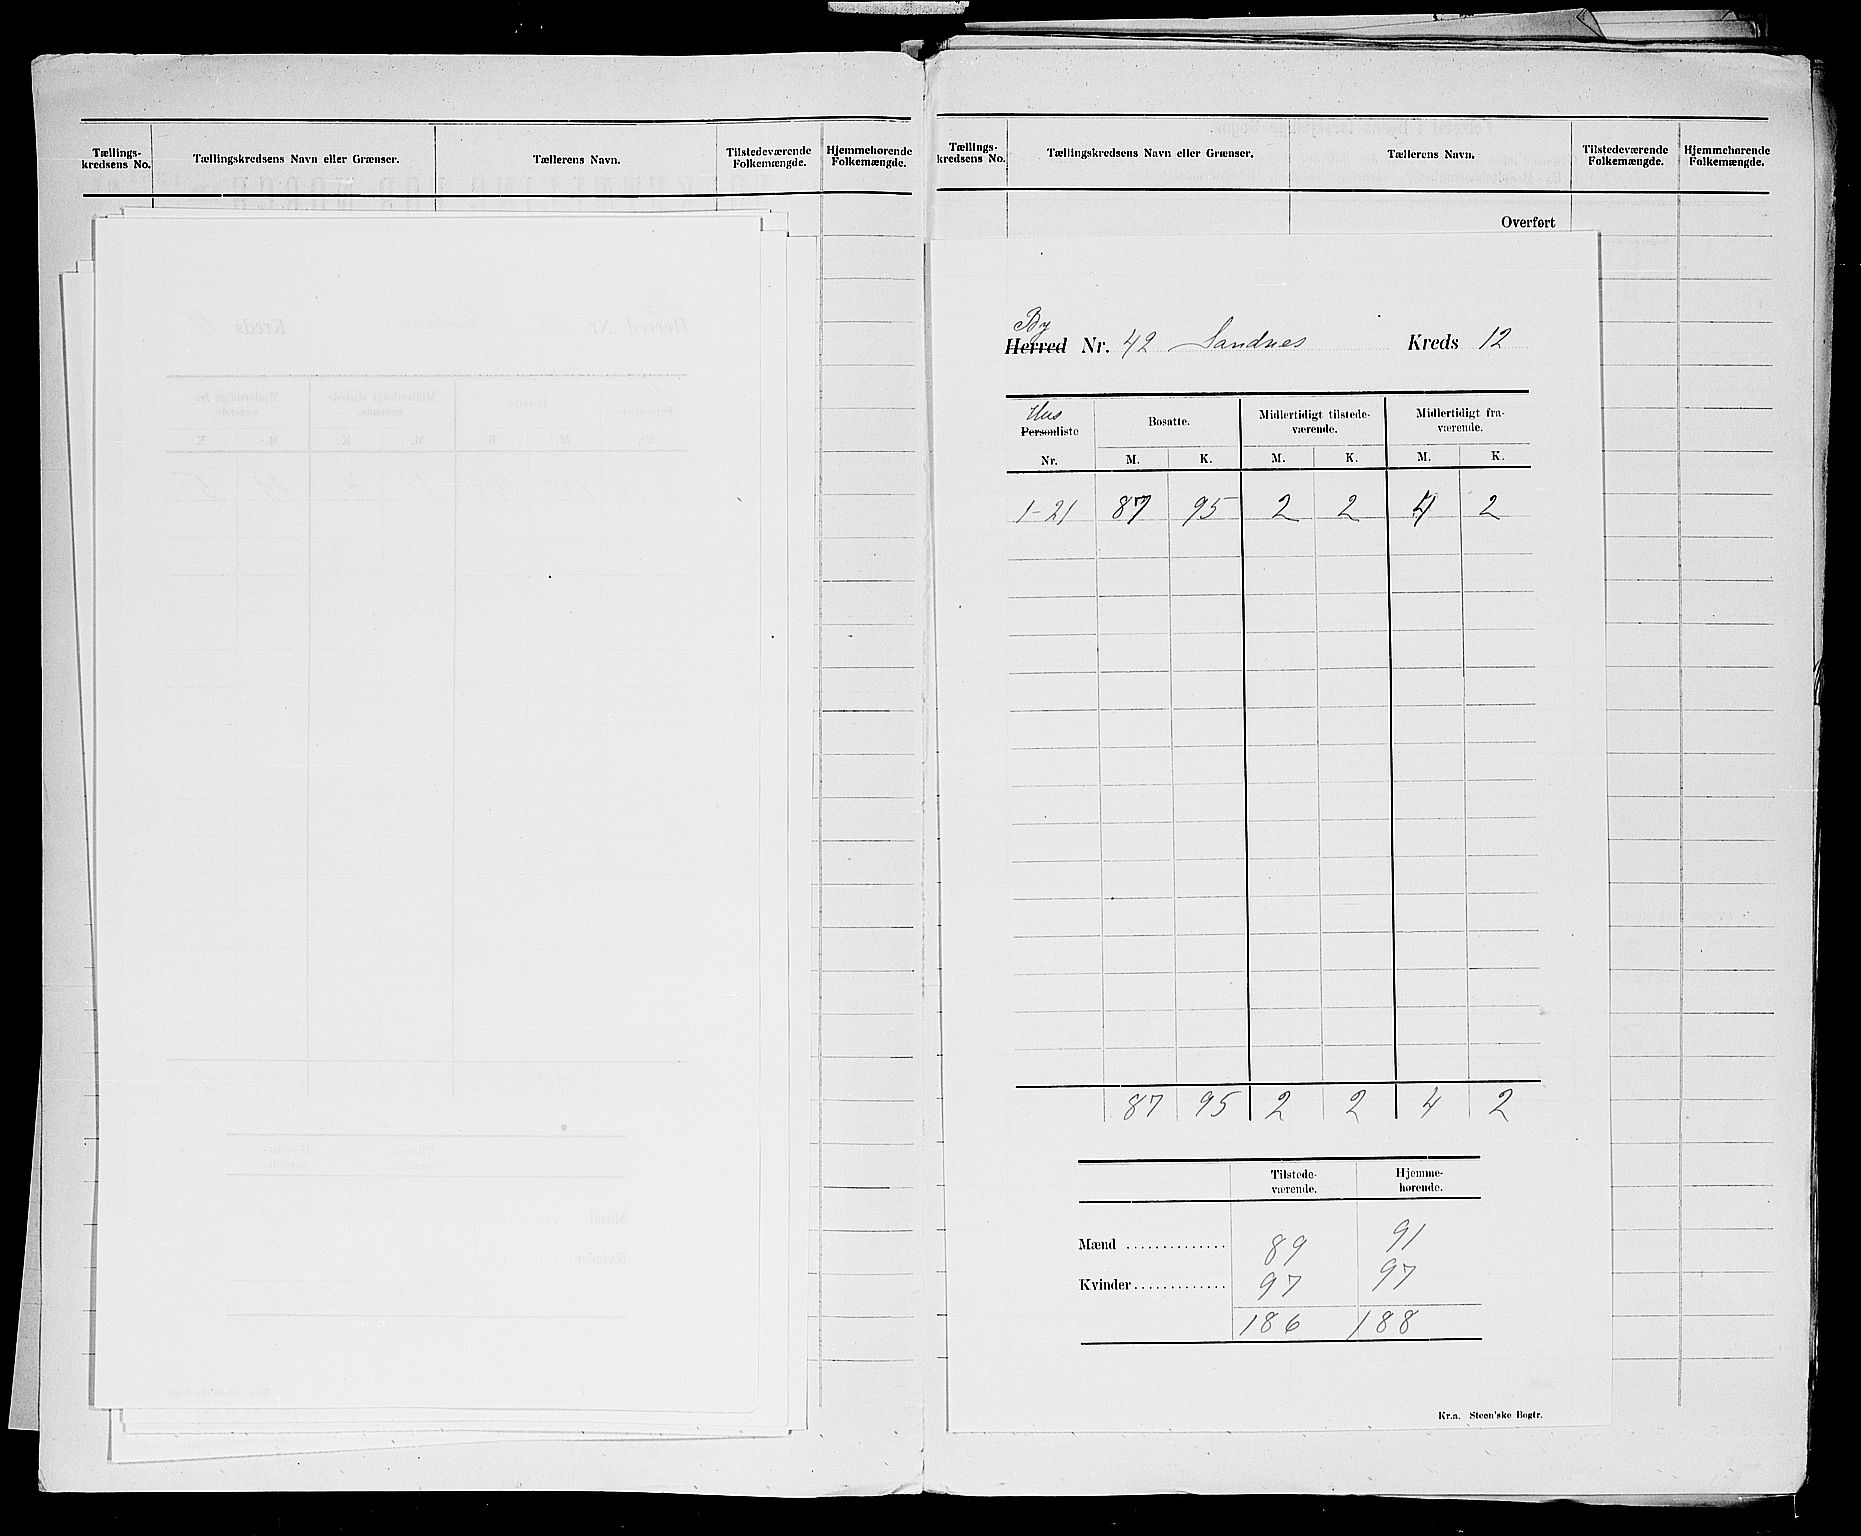 Tællings-
kredsens No.
Tællingskredsens Navn eller Grænser.
Tællerens Navn.
Tilstedeværende
Folkemængde.
Hjemmehørende
Folkemængde.
Tællings-
kredsens No.
Tællingskredsens Navn eller Grænser.
Tællerens Navn.
Tilstedeværende
Folkemængde.
Hjemmehørende
Folkemængde.
Overført
By
Herred Nr. 42 Sandnes Kreds 12
Hus
Personliste
Nr.
Bosatte.
Midlertidigt tilstede-
værende.
Midlertidigt fra-
værende.
M. K. M. K. M. K.
1-21 87 95 2 2 4 2
87 95 2 2 4 2
Tilstede-
værende.
Hjemme-
hørende.
Mænd .............. 89 91
Kvinder............. 97 97
186 188
Kr.a. Steen'ske Bogtr.